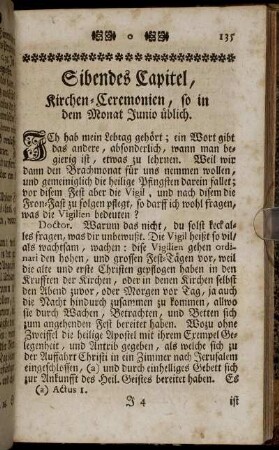 135
Sibendes Capitel,
Kirchen-Ceremonien, so in
dem Monat Junio üblich.
ICh hab mein Lebtag gehört; ein Wort gibt
das andere, absonderlich, wann man be-
gierig ist, etwas zu lehrnen. Weil wir
dann den Brachmonat für uns nemmen wollen,
und gemeiniglich die heilige Pfingsten darein fallet;
vor disem Fest aber die Vigil, und nach disem die
Fron-Fast zu folgen pflegt, so darff ich wohl fragen,
was die Vigilien bedeuten?
Doctor. Warum das nicht, du solst keck al-
les fragen, was dir unbewust. Die Vigil heist so vil/
als wachtsam, wachen: dese Vigilien gehen ordi-
nari den hohen, und grossen Fest-Tägen vor, weil
die alte und erste Christen gepflogen haben in den
Krufften der Kirchen, oder in denen Kirchen selbst
den Abend zuvor, oder Morgen vor Tag, ja auch
die Nacht hindurch zusammen zu kommen, allwo
sie durch Wachen, Betrachten, und Betten sich
zum angehenden Fest bereitet haben. Wozu ohne
Zweiffel die heilige Apostel mit ihrem Exempel Ge-
legenheit, und Antrib gegeben, als welche sich zu
der Auffahrt Christi in ein Zimmer nach Jerusalem
eingeschlossen, (a) und durch einhelliges Gebett sich
zur Ankunfft des Heil. Geistes bereitet haben. Es
(a) Actus 1.
J 4 ist